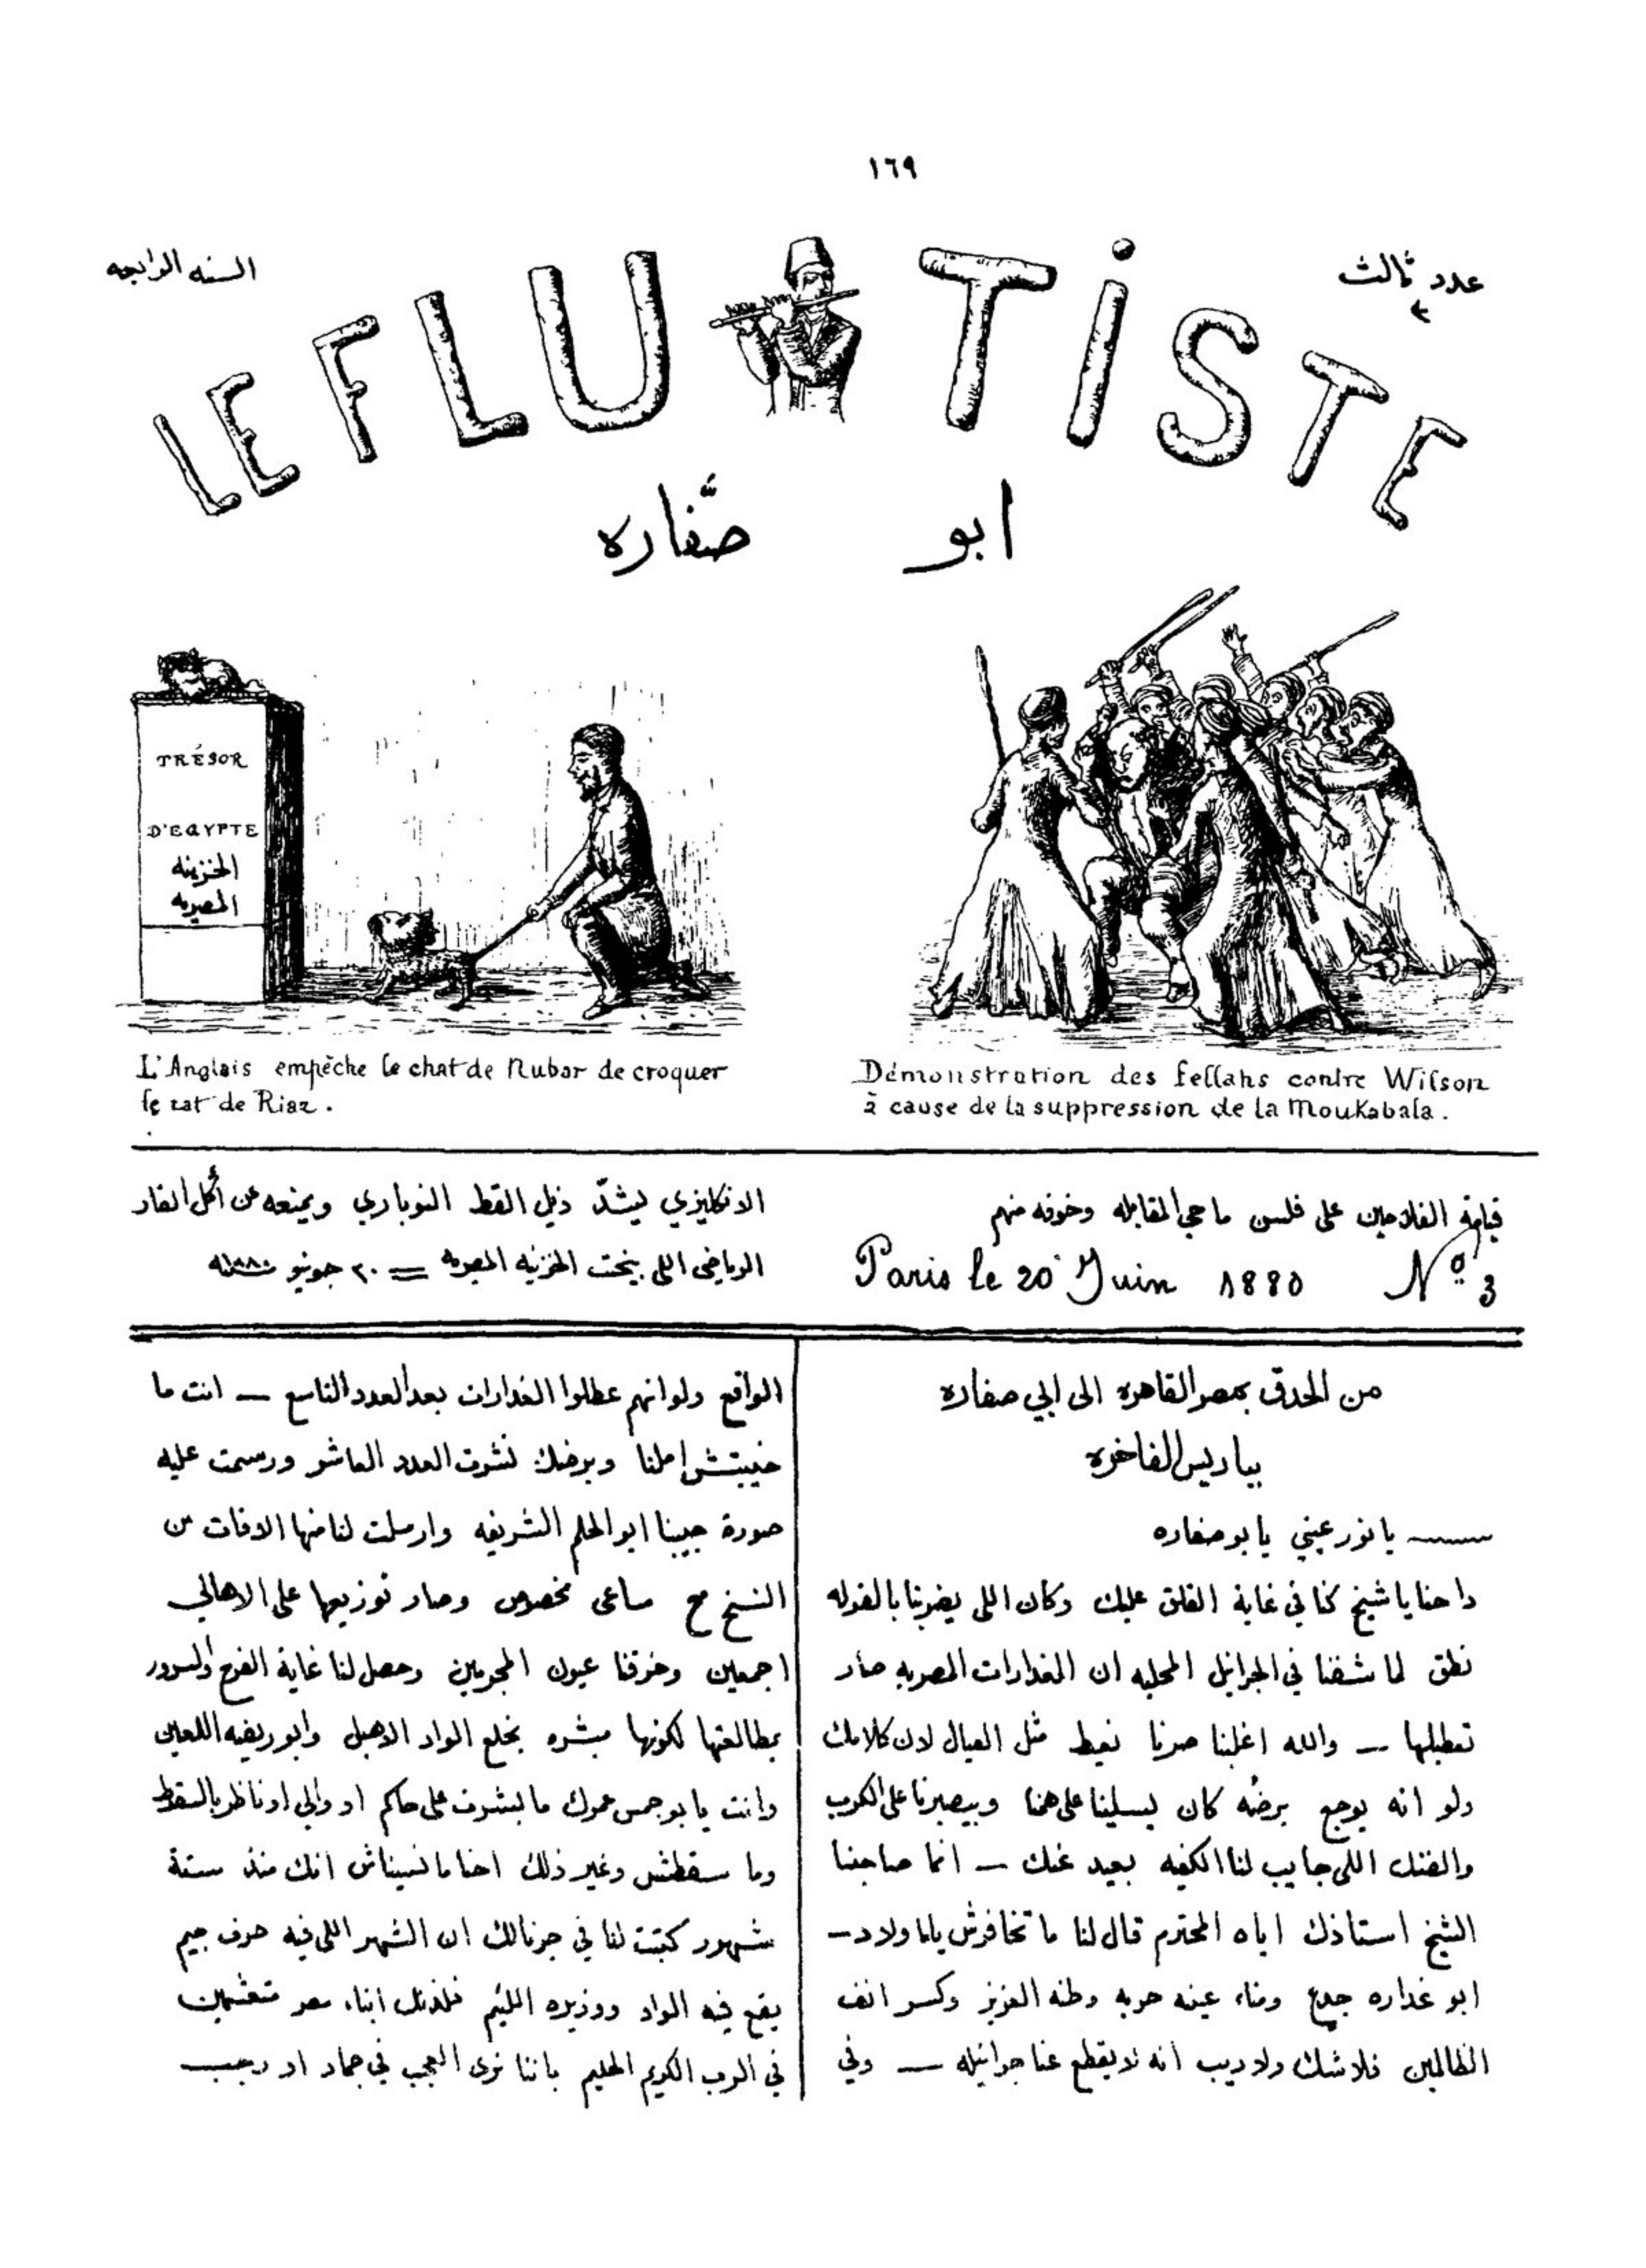 ١٦٩
عدد ثالث
٣
السنه الرابعه
LE FLUTISTE
ابو صفّاره
TRÉSOR
D'EGYPTE
الخزينه
المصريه
L'Anglais empêche le chat de Nubar de croquer
le rat de Riaz.
Démonstration des fellahs contre Wilson
à cause de la suppression de la Moukabala.
قيامة الفلاحين على فلسن ماحي المقابله وخوفه منهم
Paris le 20 Juin 1880 Nº 3
الانكليزي يشدّ ذيل القط النوباري ويمنعه عن أكل الفار
الرياضي اللي بيخت الخزنيه المصريه = ٢٠ جونيو سنة ١٨٨٠
من الحدق بمصر القاهره الى ابي صفاره
بباريس الفاخره
يا نور عيني يابو صفاره
داحنا ياشيخ كنا في غاية القلق عليك وكان اللي يضربنا بالفوله
نطق لما شفنا في الجرانيل المحليه ان الغدارات المصريه صار
تعطيلها — والله اغلبنا صرنا نعيط مثل العيال لان كلامك
ولو انه يوجع برضُه كان يسلينا على همنا وبيصبرنا على الكرب
والضنك اللي جايب لنا الكفيه بعيد عنك — انما صاحبنا
الشيخ استاذك اياه المحترم قال لنا ما تخافوش يااولاد —
ابو غداره جدع ومناه عينه حرية وطنه العزيز وكسر انف
الظالمين فلا شك ولا ريب انه لا يقطع عنا جرانيله — وفي
الواقع ولو انهم عطلوا الغدارات بعد العدد التاسع — انت ما
خيبتش املنا وبرضك نشرت العدد العاشر ورسمت عليه
صورة حبيبنا ابو الحلم الشريفه وارسلت لنا منها الافات من
النسخ مع ساعى مخصوص وصار توزيعها على الاهالي
اجمعين وخزقنا عيون المجرمين وحصل لنا غاية الفرح والسرور
بمطالعتها لكونها مبشره بخلع الواد الاهبل وابو ريضه اللعين
وانت يابو جمس عمرك ما بشرت على حاكم او والي او ناظر بالسقوط
وما سقطش وغير ذلك احنا ما نسيناش انك منذ ستة
شهور كتبت لنا في جرنالك ان الشهر اللي فيه حرف جيم
يقع فيه الواد ووزيره اللئيم فلذلك ابناء مصر متعشمين
في الرب الكريم الحليم باننا نرى العجب في جماد او رجب